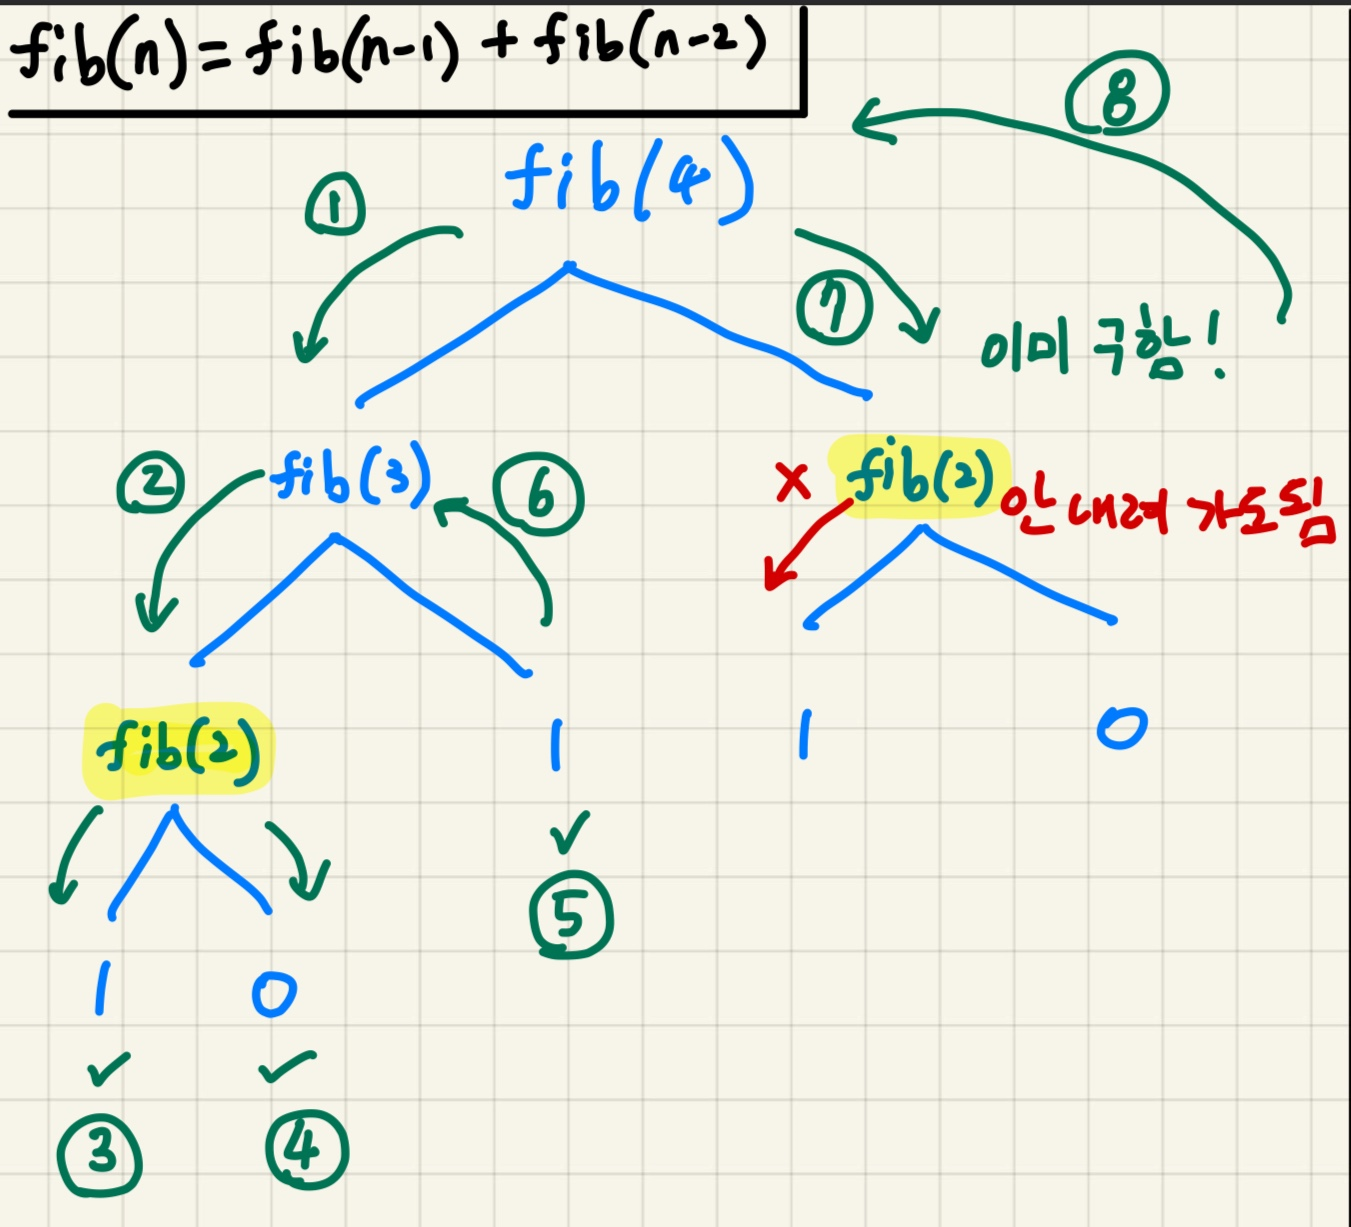 fib(n)=fib(n-1) + fib(n-2)
⑧
fib(4)
①
⑦
이미 구함!
②
fib(3)
⑥
x fib(2) 안 내려 가도 됨
fib(2)
1
1
0
⑤
1 0
③ ④